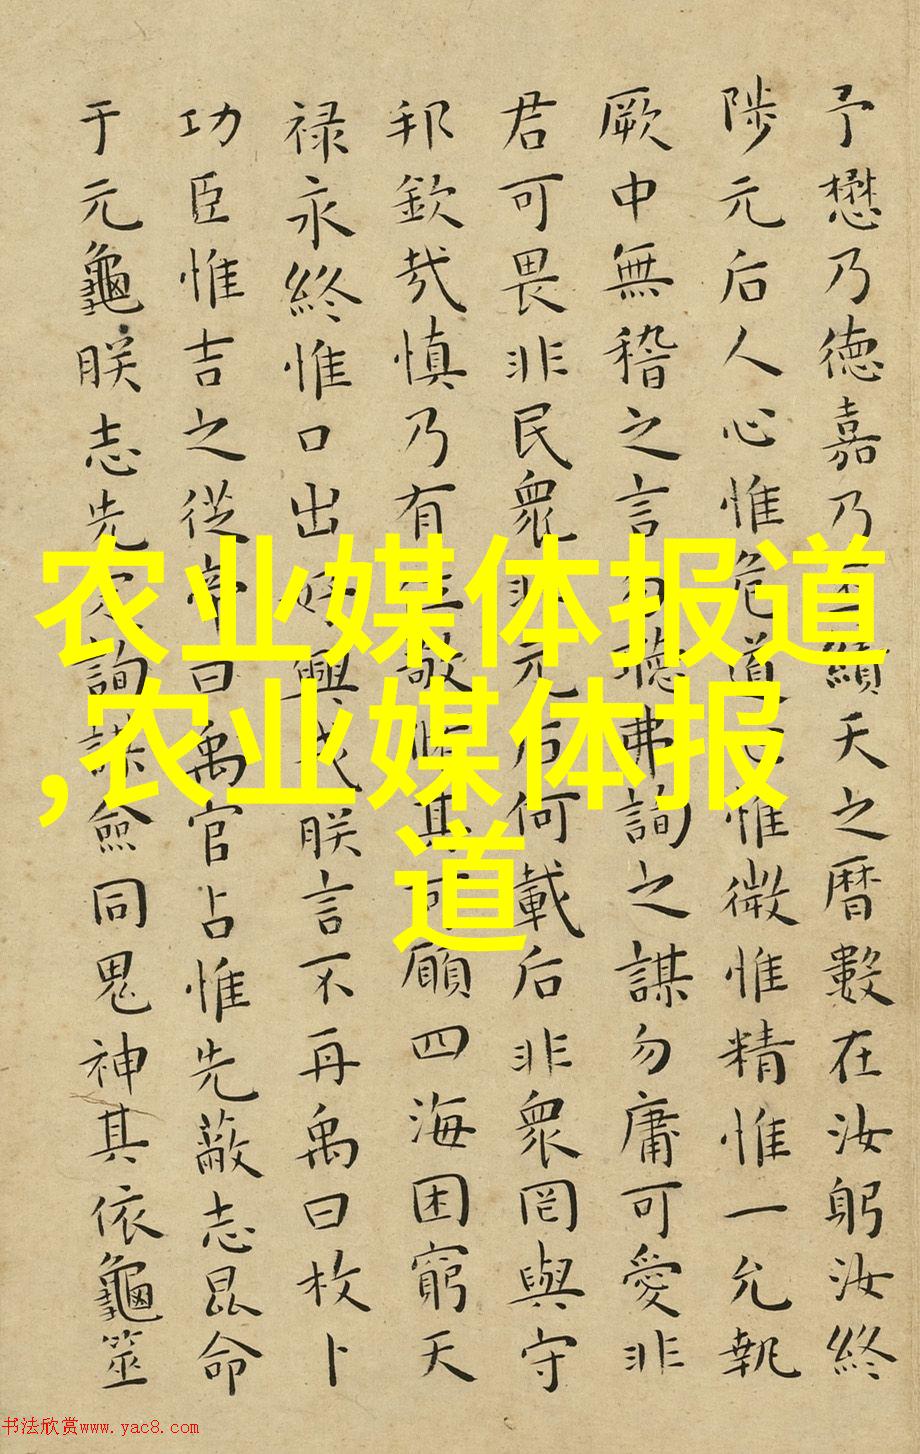 予懋乃德嘉乃績天之曆數在汝躬汝終
陟元后人心惟危道惟微惟精惟一允執
厥中無稽之言聽弗詢之謀勿庸可愛非
君可畏非民衆非元后何載后非衆罔與守
邦欽哉慎乃有敬其可願四海困窮天
禄永終惟口出好興戎朕言不再禹曰枚卜
功臣惟吉之從帝曰禹官占惟先蔽志昆命
于元龜朕志先詢謀僉同鬼神其依龜筮
农业媒体报道
,农业媒体报
道
书法欣赏www.yac8.com